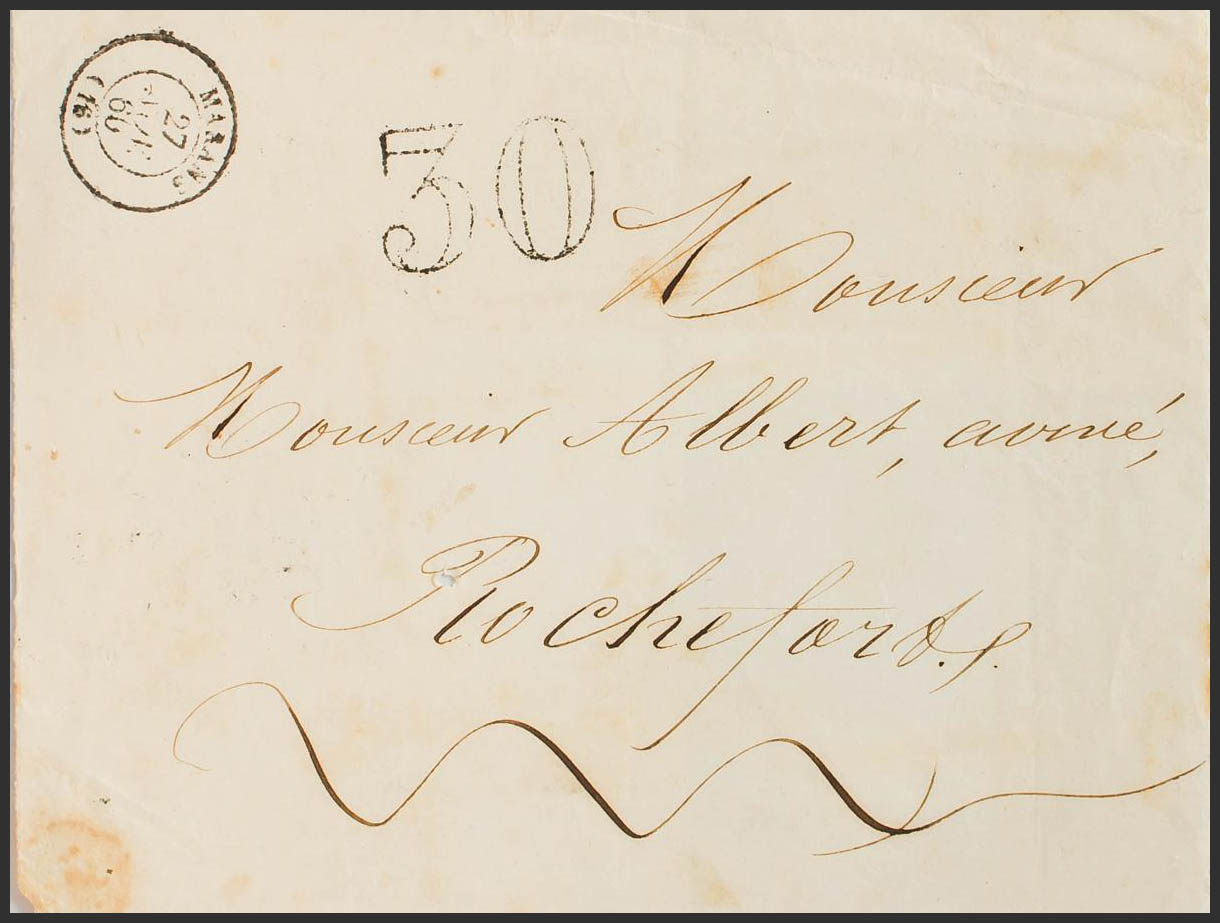 MARANS
27
60
(16)
30
Monsieur
Monsieur Albert, avoué,
Rochefort. s.